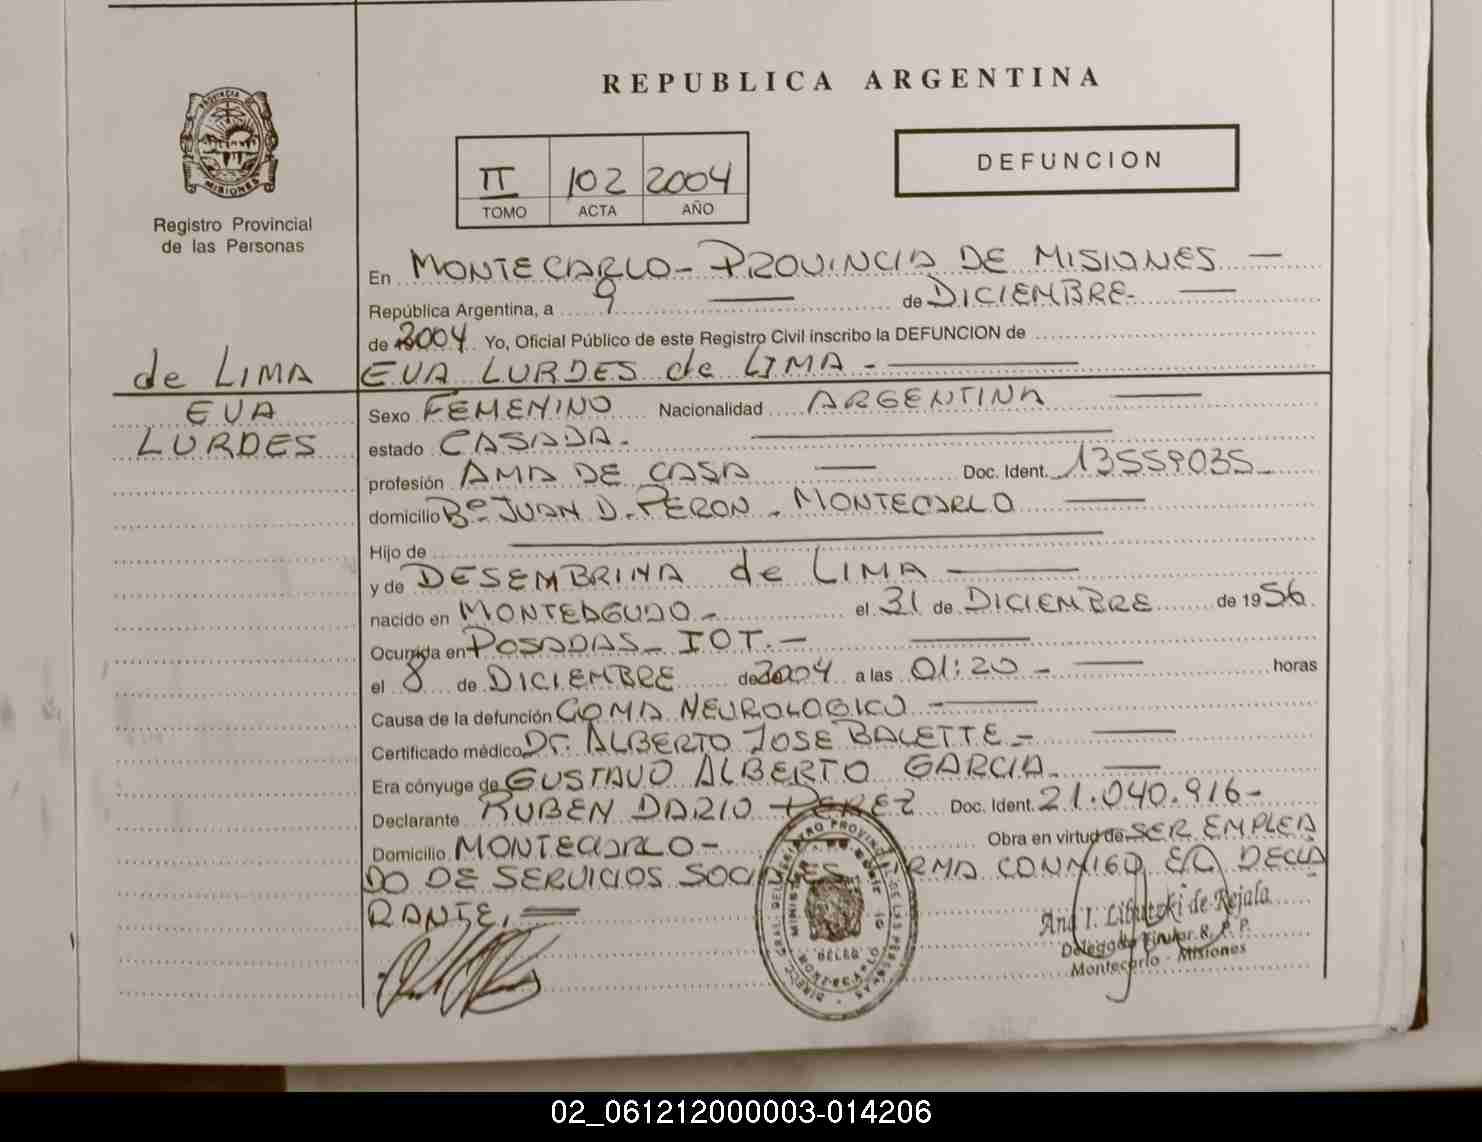 REPUBLICA ARGENTINA
PROVINCIA DE
MISIONES
Registro Provincial
de las Personas
II 102 2004
TOMO ACTA AÑO
DEFUNCION
En MONTECARLO - PROVINCIA DE MISIONES —
República Argentina, a 9 — de DICIEMBRE. —
de 2004 Yo, Oficial Público de este Registro Civil inscribo la DEFUNCION de
de LIMA EVA LURDES de LIMA - —
EVA
LURDES
Sexo FEMENINO Nacionalidad ARGENTINA —
estado CASADA. —
profesión AMA DE CASA — Doc. Ident. 13559035 -
domicilio Bº JUAN D. PERON - MONTECARLO —
Hijo de —
y de DESEMBRINA de LIMA —
nacido en MONTEAGUDO - el 31 de DICIEMBRE de 1956
Ocurrida en POSADAS - IOT. - —
el 8 de DICIEMBRE de 2004 a las 01:20 - — horas
Causa de la defunción COMA NEUROLOGICO - —
Certificado médico Dr. ALBERTO JOSE BALETTE - —
Era cónyuge de GUSTAVO ALBERTO GARCIA. —
Declarante RUBEN DARIO PEREZ Doc. Ident. 21.040.916 -
Domicilio MONTECARLO - Obra en virtud de SER EMPLEA
DO DE SERVICIOS SOCIALES. FIRMA CONMIGO EL DECLA
RANTE. —
Delegada Titular R. P. P.
Montecarlo - Misiones
02_061212000003-014206